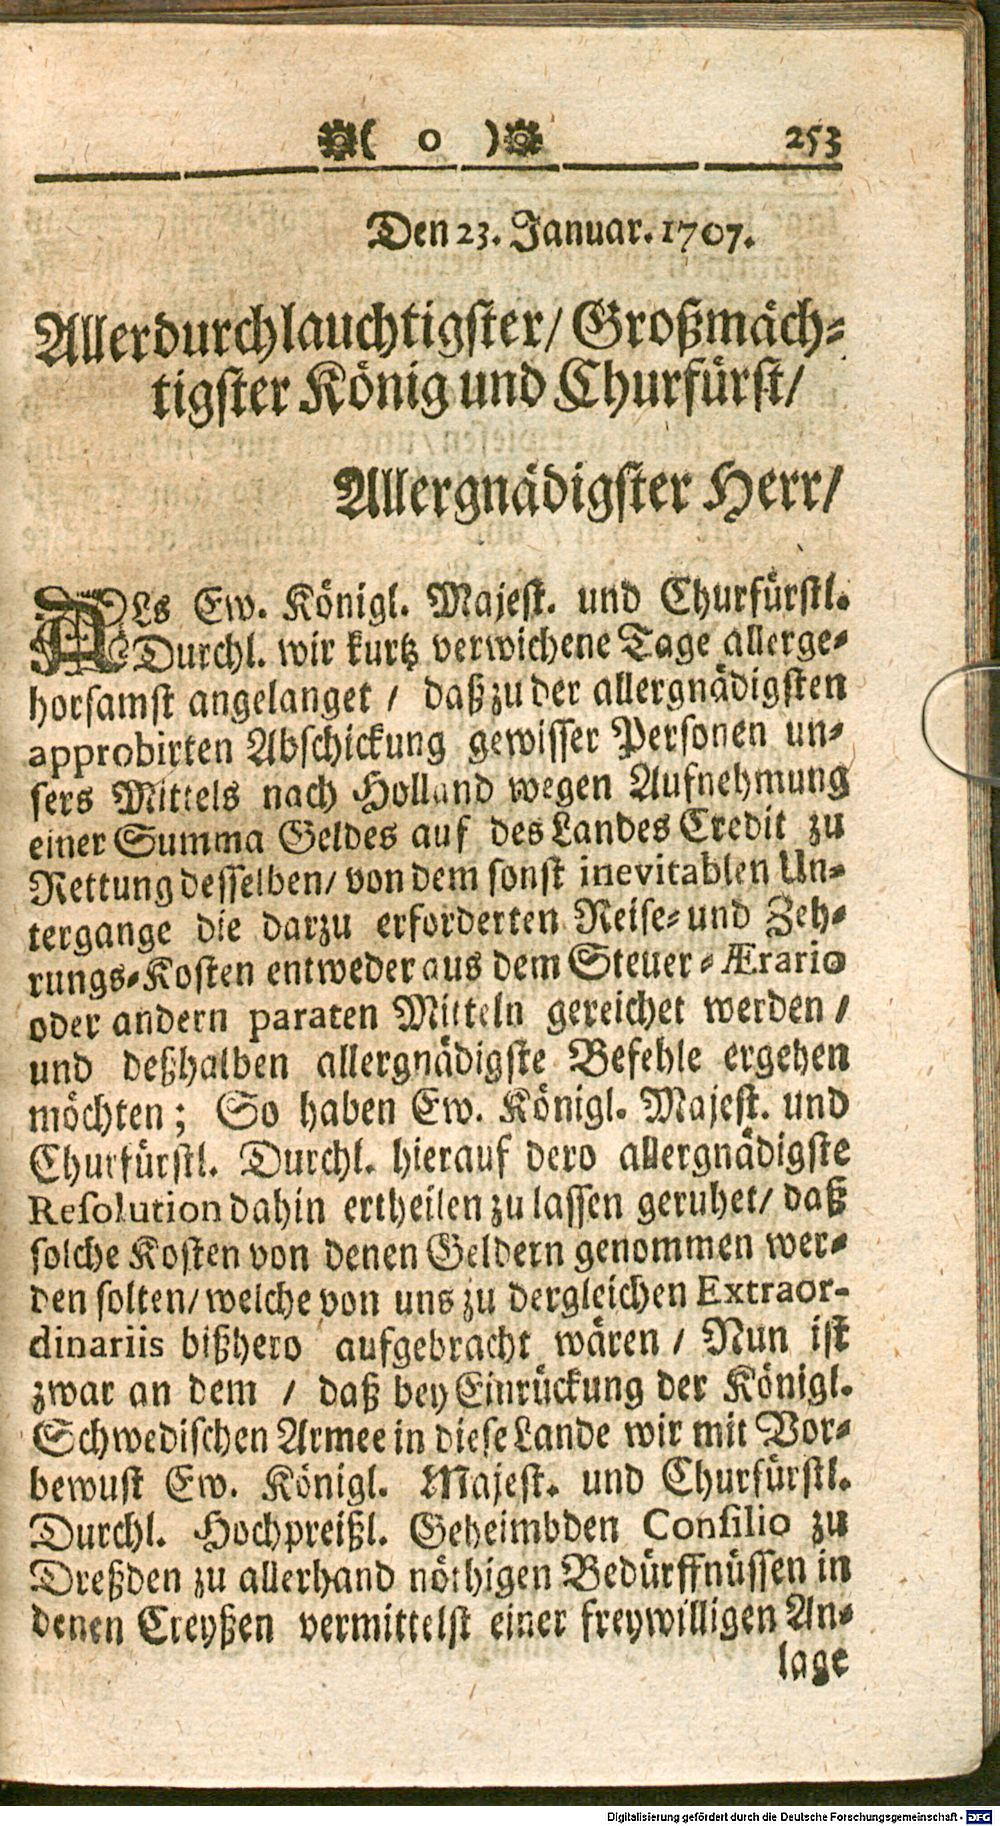 ( o ) 253
Den 23. Januar. 1707.
Allerdurchlauchtigster/ Großmäch-
tigster König und Churfürst/
Allergnädigster Herr/
Als Ew. Königl. Majest. und Churfürstl.
Durchl. wir kurtz verwichene Tage allerge-
horsamst angelanget / daß zu der allergnädigsten
approbirten Abschickung gewisser Personen un-
sers Mittels nach Holland wegen Aufnehmung
einer Summa Geldes auf des Landes Credit zu
Rettung desselben/ von dem sonst inevitablen Un-
tergange die darzu erforderten Reise- und Zeh-
rungs-Kosten entweder aus dem Steuer-Ærario
oder andern paraten Mitteln gereichet werden /
und deßhalben allergnädigste Befehle ergehen
möchten; So haben Ew. Königl. Majest. und
Churfürstl. Durchl. hierauf dero allergnädigste
Resolution dahin ertheilen zu lassen geruhet/ daß
solche Kosten von denen Geldern genommen wer-
den solten/ welche von uns zu dergleichen Extraor-
dinariis bißhero aufgebracht wären / Nun ist
zwar an dem / daß bey Einrückung der Königl.
Schwedischen Armee in diese Lande wir mit Vor-
bewust Ew. Königl. Majest. und Churfürstl.
Durchl. Hochpreißl. Geheimbden Consilio zu
Dreßden zu allerhand nöthigen Bedürffnüssen in
denen Creyßen vermittelst einer freywilligen An-
lage
Digitalisierung gefördert durch die Deutsche Forschungsgemeinschaft - DFG